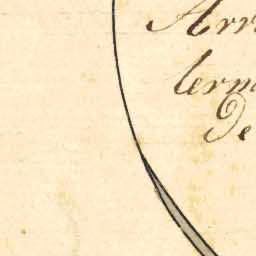 Arr
lerm
de